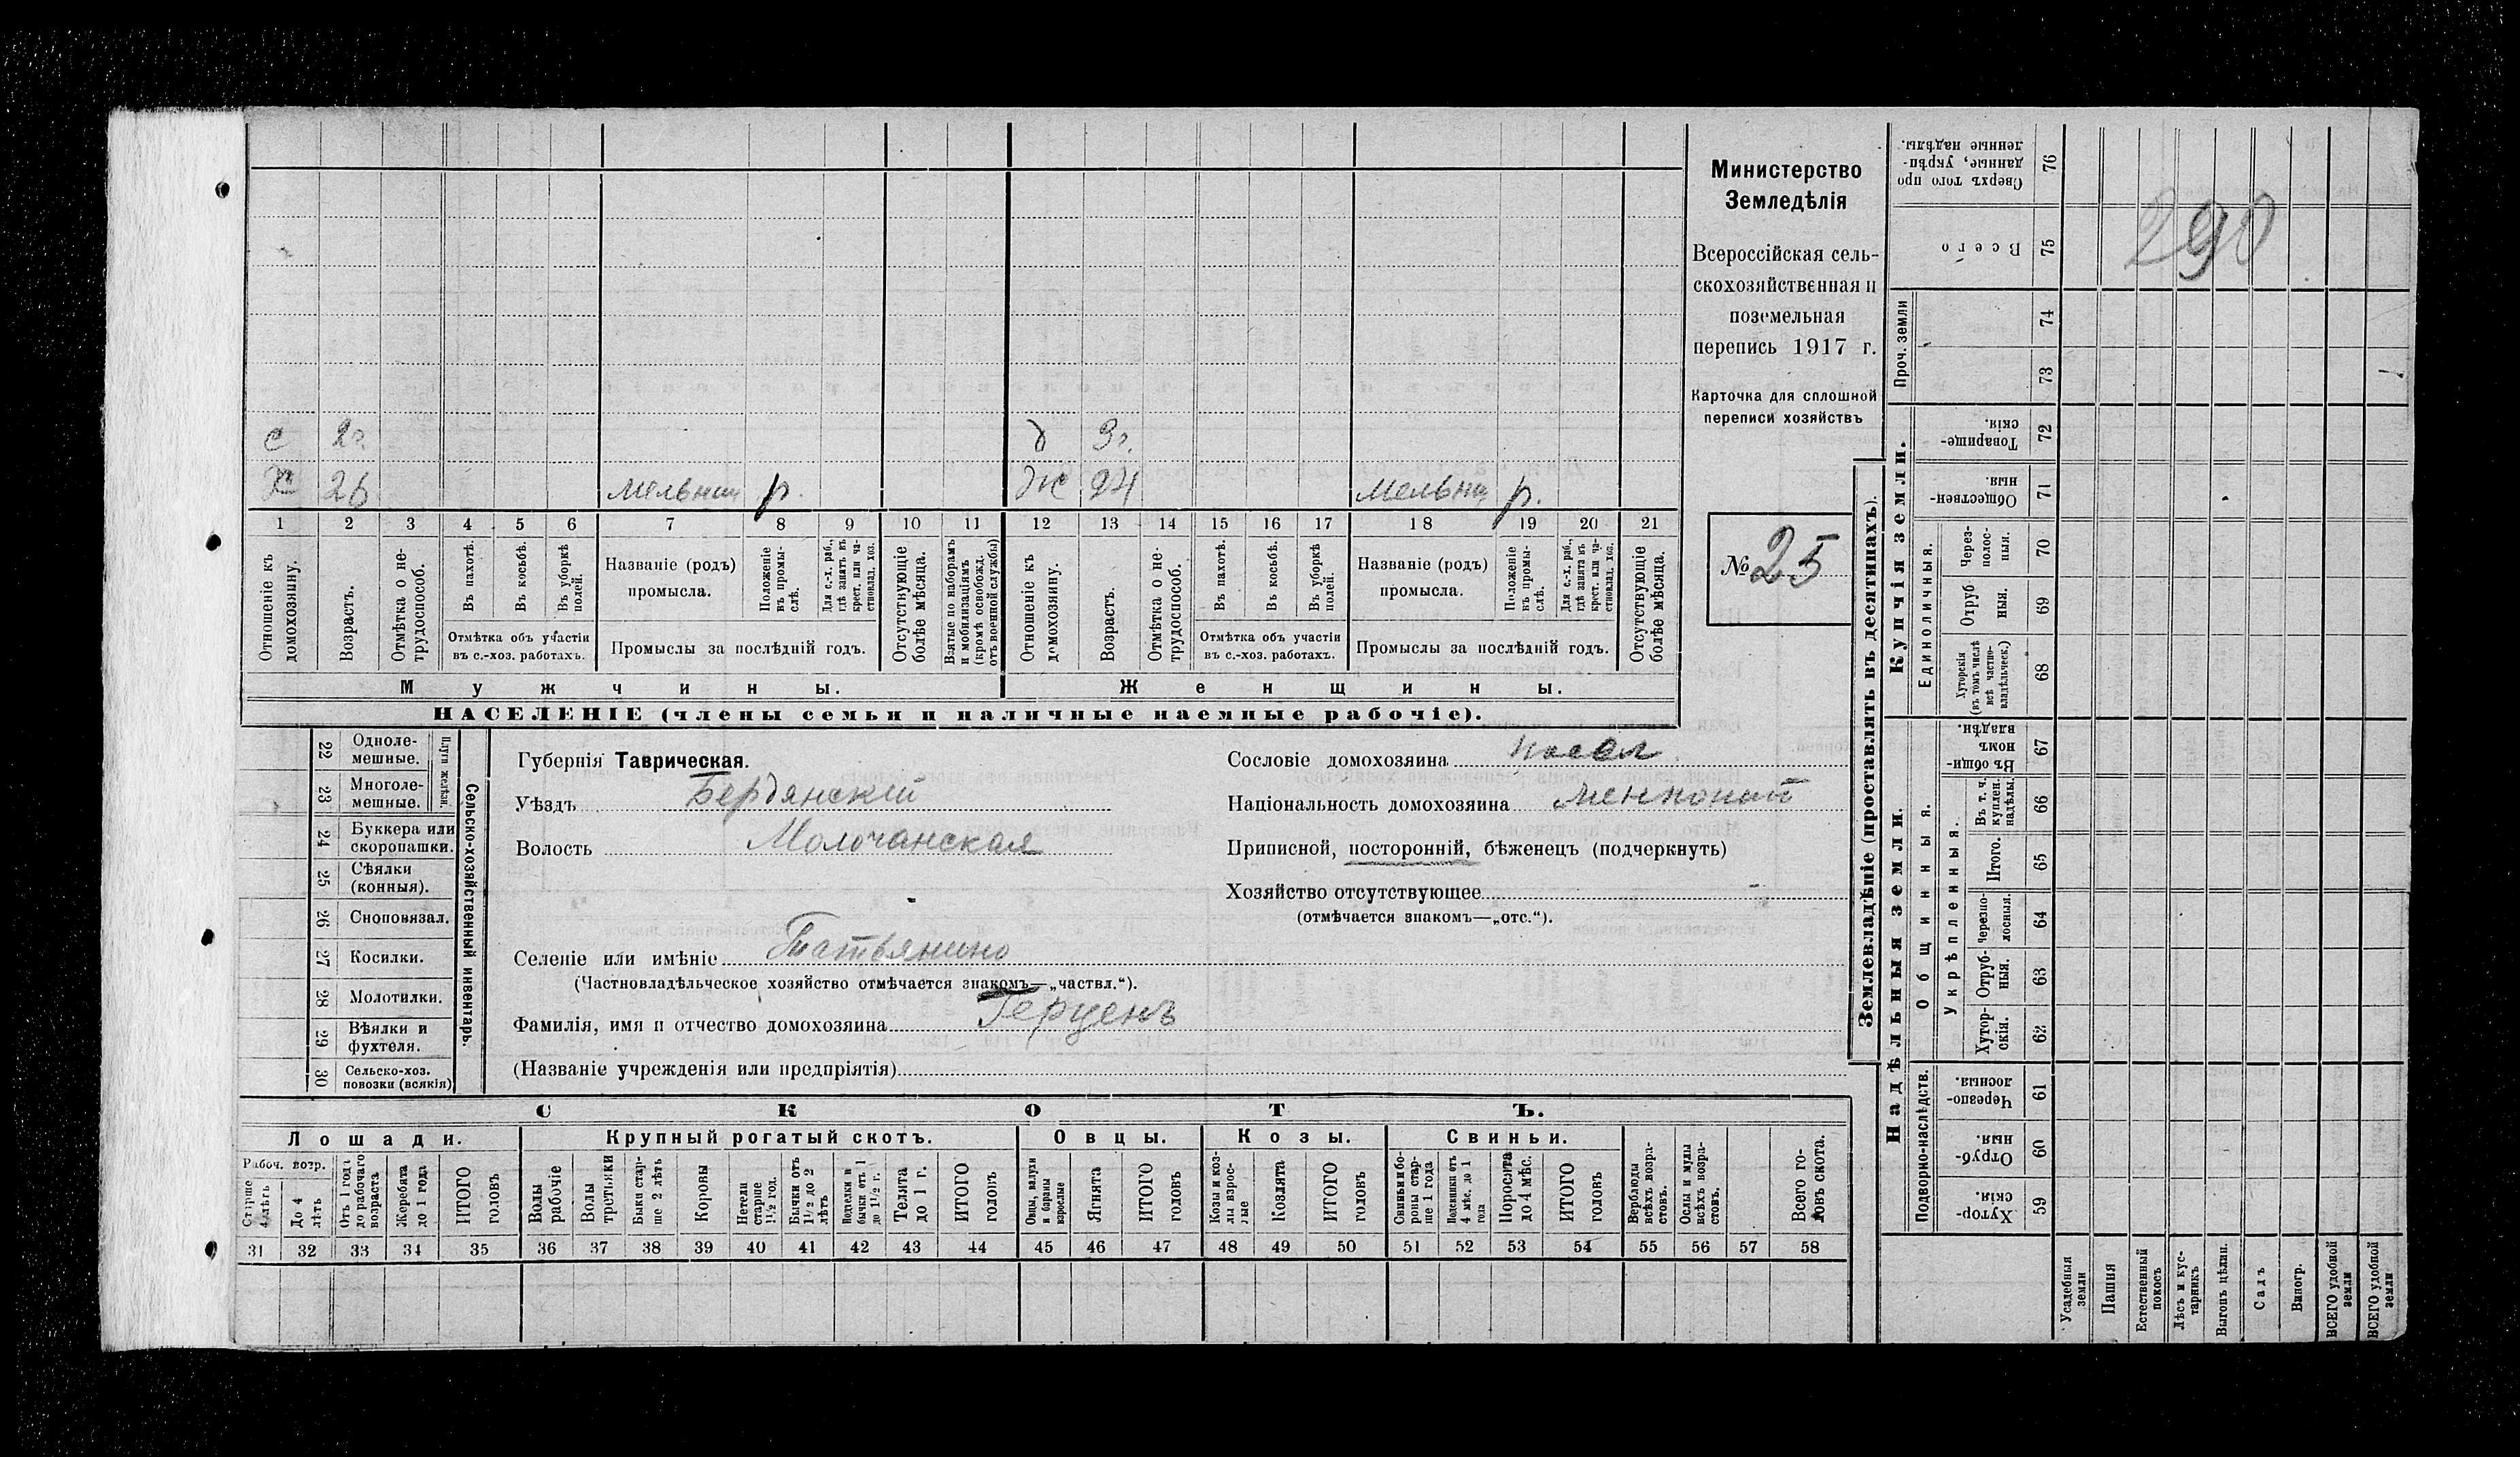 с 2г. д 3г.
Х 26 р. Ж 24 р.
1 2 3 4 5 6 7 8 9 10 11 12 13 14 15 16 17 18 19 20 21
Отношеніе къ домохозяину.
Возрастъ.
Отмѣтка о не-трудоспособ.
Въ пахотѣ.
Въ косьбѣ.
Въ уборкѣ полей.
Отмѣтка объ участіи
въ с.-хоз. работахъ.
Названіе (родъ)
промысла.
Положеніе въ промы-слѣ.
Для с.-х. раб., гдѣ занятъ въ крест. или ча-стновлад. хоз.
Промыслы за послѣдній годъ.
Отсутствующіе болѣе мѣсяца.
Взятые по наборамъ и мобилизаціямъ (кромѣ освобожд. отъ военной службы)
Отношеніе къ домохозяину.
Возрастъ.
Отмѣтка о не-трудоспособ.
Въ пахотѣ.
Въ косьбѣ.
Въ уборкѣ полей.
Отмѣтка объ участіи
въ с.-хоз. работахъ.
Названіе (родъ)
промысла.
Положеніе въ промы-слѣ.
Для с.-х. раб., гдѣ занята въ крест. или ча-стновлад. хоз.
Промыслы за послѣдній годъ.
Отсутствующіе болѣе мѣсяца.
Мужчины.
Женщины.
НАСЕЛЕНІЕ (члены семьи и наличные наемные рабочіе).
Министерство
Земледѣлія
Всероссійская сель-
скохозяйственная и
поземельная
перепись 1917 г.
Карточка для сплошной
переписи хозяйствъ
№ 25
Сельско-хозяйственный инвентарь.
Плуги желѣзн.
22 Одноле-
мешные.
23 Многоле-
мешные.
24 Буккера или
скоропашки.
25 Сѣялки
(конныя).
26 Сноповязал.
27 Косилки.
28 Молотилки.
29 Вѣялки и
фухтеля.
30 Сельско-хоз.
повозки (всякія)
Губернія Таврическая.
Уѣздъ Бердянскій
Волость Молочанская
Селеніе или имѣніе Татьянино
(Частновладѣльческое хозяйство отмѣчается знакомъ—„частвл.“).
Фамилія, имя и отчество домохозяина Герценъ
(Названіе учрежденія или предпріятія)
Сословіе домохозяина посел
Національность домохозяина менонит
Приписной, посторонній, бѣженецъ (подчеркнуть)
Хозяйство отсутствующее -
(отмѣчается знакомъ—„отс.“).
СКОТЪ.
Лошади.
Рабоч. возр.
Старше 4 лѣтъ
До 4 лѣтъ
Отъ 1 года до рабочаго возраста
Жеребята до 1 года
ИТОГО головъ
Крупный рогатый скотъ.
Волы рабочіе
Волы третьяки
Быки стар-ше 2 лѣтъ
Коровы
Нетели старше 1½ год.
Бычки отъ 1½ до 2 лѣтъ
Подтелки и бычки отъ 1 до 1½ г.
Телята до 1 г.
ИТОГО головъ
Овцы.
Овцы, валухи и бараны взрослые
Ягнята
ИТОГО головъ
Козы.
Козы и коз-лы взрос-лые
Козлята
ИТОГО головъ
Свиньи.
Свиньи и бо-ровы стар-ше 1 года
Подсвинки отъ 4 мѣс. до 1 года
Поросята до 4 мѣс.
ИТОГО головъ
Верблюды всѣхъ возра-стовъ.
Ослы и мулы всѣхъ возра-стовъ.
Всего го-ловъ скота.
31 32 33 34 35 36 37 38 39 40 41 42 43 44 45 46 47 48 49 50 51 52 53 54 55 56 57 58
Землевладѣніе (проставлять въ десятинахъ).
290
Сверхъ того про
данные, укрѣп-
ленные надѣлы. 76
Всего 75
Проч. земли 74 73
Купчія земли.
Товарище-
скія. 72
Обществен-
ныя. 71
Единоличныя.
Через-
полос-
ныя. 70
Отруб
ныя. 69
Хуторскія
(въ томъ числѣ
всѣ частно-
владѣльческ.) 68
Надѣльныя земли.
Общинныя.
Въ общи-
номъ
владѣн. 67
Укрѣпленныя.
Въ т. ч.
куплен.
надѣлы. 66
Итого. 65
Черезпо-
лосныя. 64
Отруб-
ныя. 63
Хутор-
скія. 62
Подворно-наслѣдств.
Черезпо-
лосныя. 61
Отруб-
ныя. 60
Хутор-
скія. 59
Усадебныя земли
Пашня
Естественный покосъ
Лѣсъ и кус-тарникъ
Выгонъ цѣлин.
Садъ
Виногр.
ВСЕГО удобной земли
ВСЕГО удобной земли